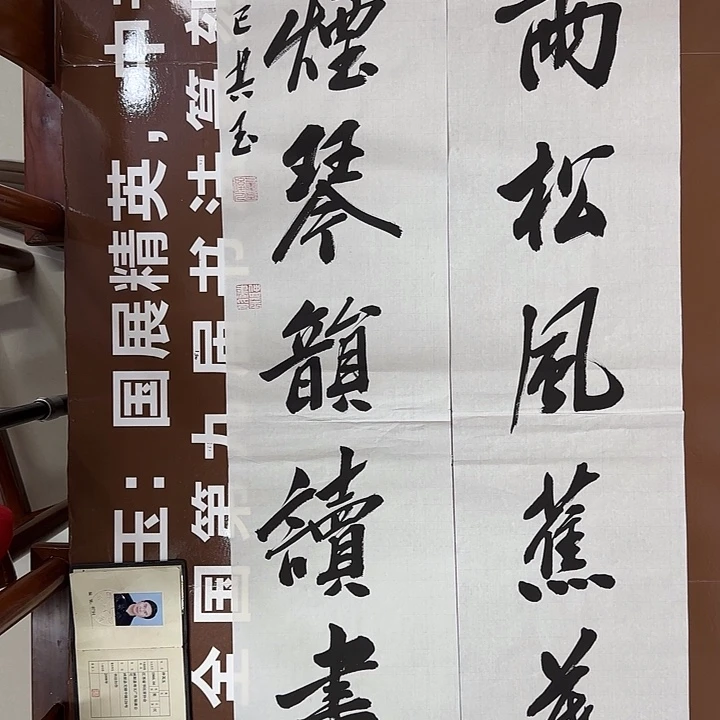 雨松風蕉葉
煙琴韻讀書
其玉
玉：国展精英，中
全国第九届书法篆